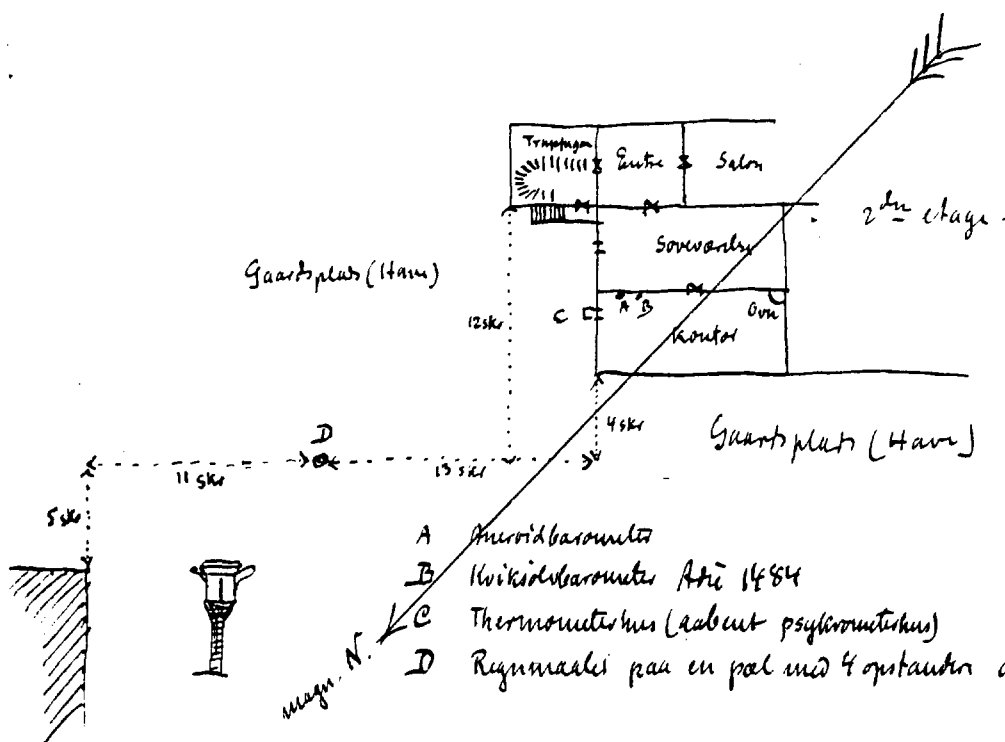 Entre
Salon
2den etage.
Soveværelse
Gaardsplads (Have)
12 skr
C
A B
Ovn
Kontor
4 skr
D
Gaardsplads (Have)
11 skr
13 skr
5 skr
A Aneroidbarometer
B Kviksølvbarometer Adie 1484
C Thermometerhus (aabent psykrometerhus)
D Regnmaaler paa en pæl med 4 opstandere
magn. N.